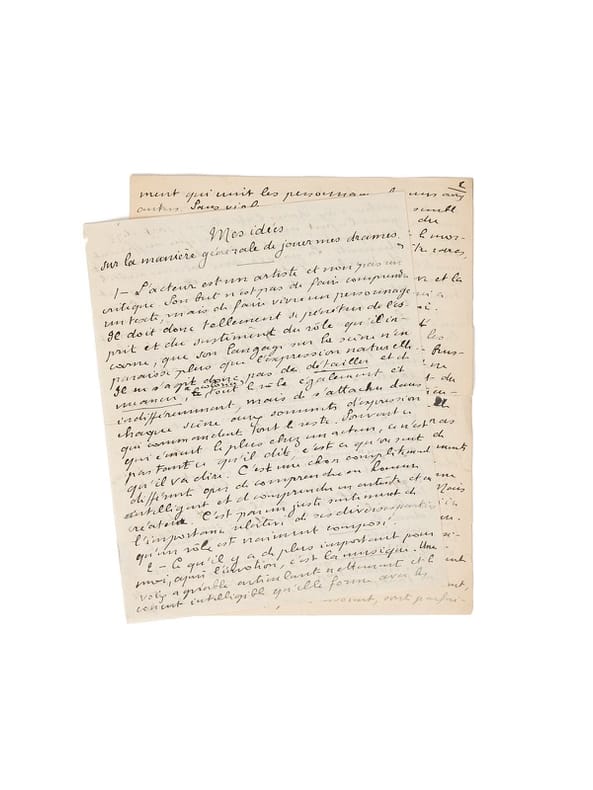 ment qui unit les personnages
autres. Sans
Mes idées
sur la manière générale de jouer mes drames.
1 – L'acteur est un artiste et non pas un
critique. Son but n'est pas de faire comprendre
un texte, mais de faire vivre un personnage.
Il doit donc tellement se pénétrer de l'es-
prit et du sentiment du rôle qu'il in-
carne, que son langage sur la scène n'en
paraisse plus que l'expression naturelle.
Il ne s'agit donc pas de détailler et de
nuancer, tout le rôle également et
indifféremment, mais de s'attacher dans
chaque scène aux sommets d'expression
qui commandent tout le reste. Souvent ce
qui émeut le plus chez un acteur, ce n'est pas
pas tant ce qu'il dit, c'est ce qu'on sent
qu'il va dire. C'est une chose complètement
différente que de comprendre en homme
intelligent et de comprendre en artiste et en
créateur. C'est par un juste sentiment de
l'importance relative de ses diverses parties
qu'un rôle est vraiment composé.
2 – Ce qu'il y a de plus important pour
moi, après l'émotion, c'est la musique. Une
voix agréable articulant nettement et le
concert intelligible qu'elle forme avec les
sont parfai-